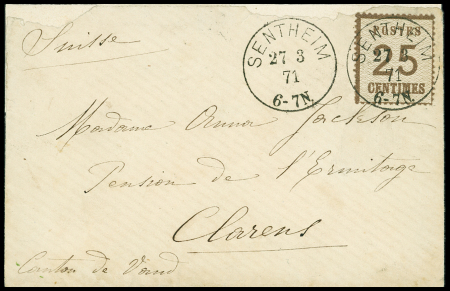 Suisse
SENTHEIM
27 3
71
6-7N.
POSTES
25
CENTIMES
SENTHEIM
27
71
6-7N.
Madame Anna Jackson
Pension de l'Ermitage
Clarens
Canton de Vaud